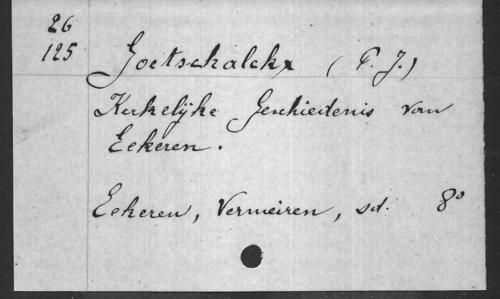 26
125
Goetschalckx (P. J.)
Kerkelijke Geschiedenis van
Eekeren.
Eekeren, Vermeiren, sd. 8°